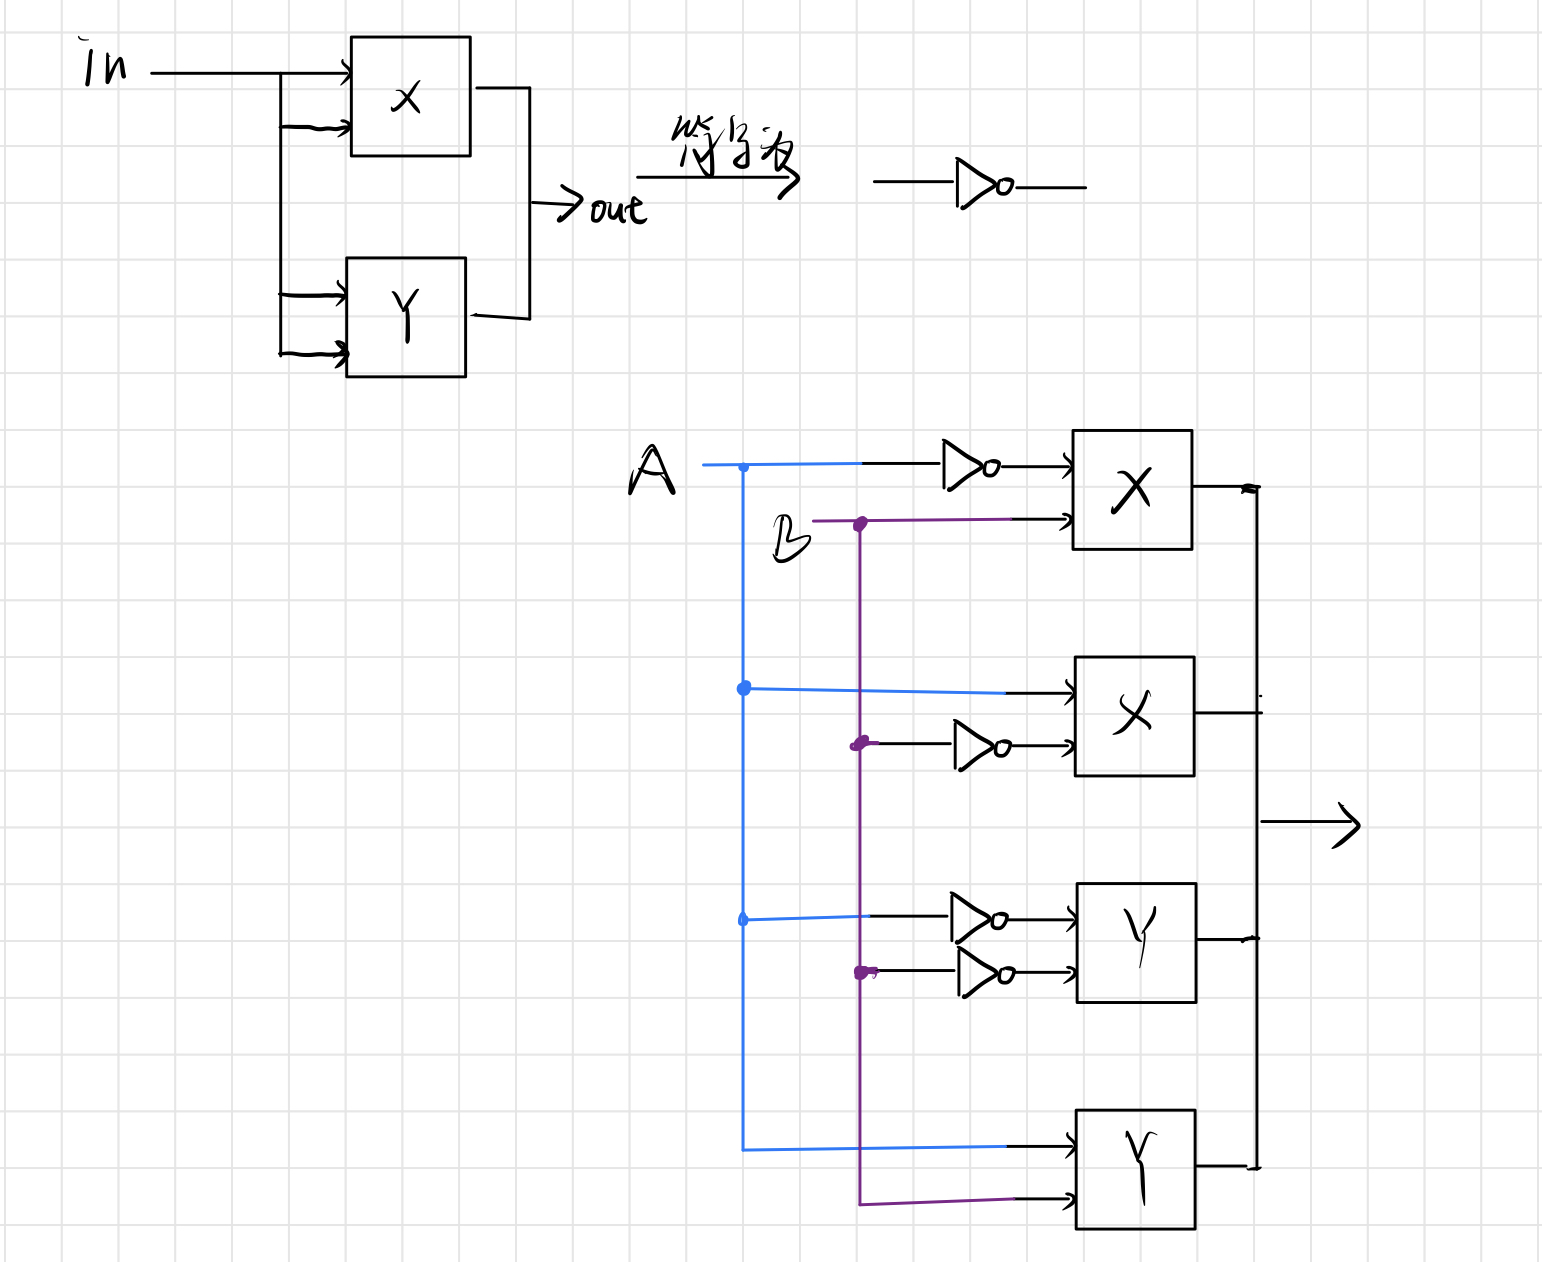 in
X
Y
out
A
B
X
X
Y
Y